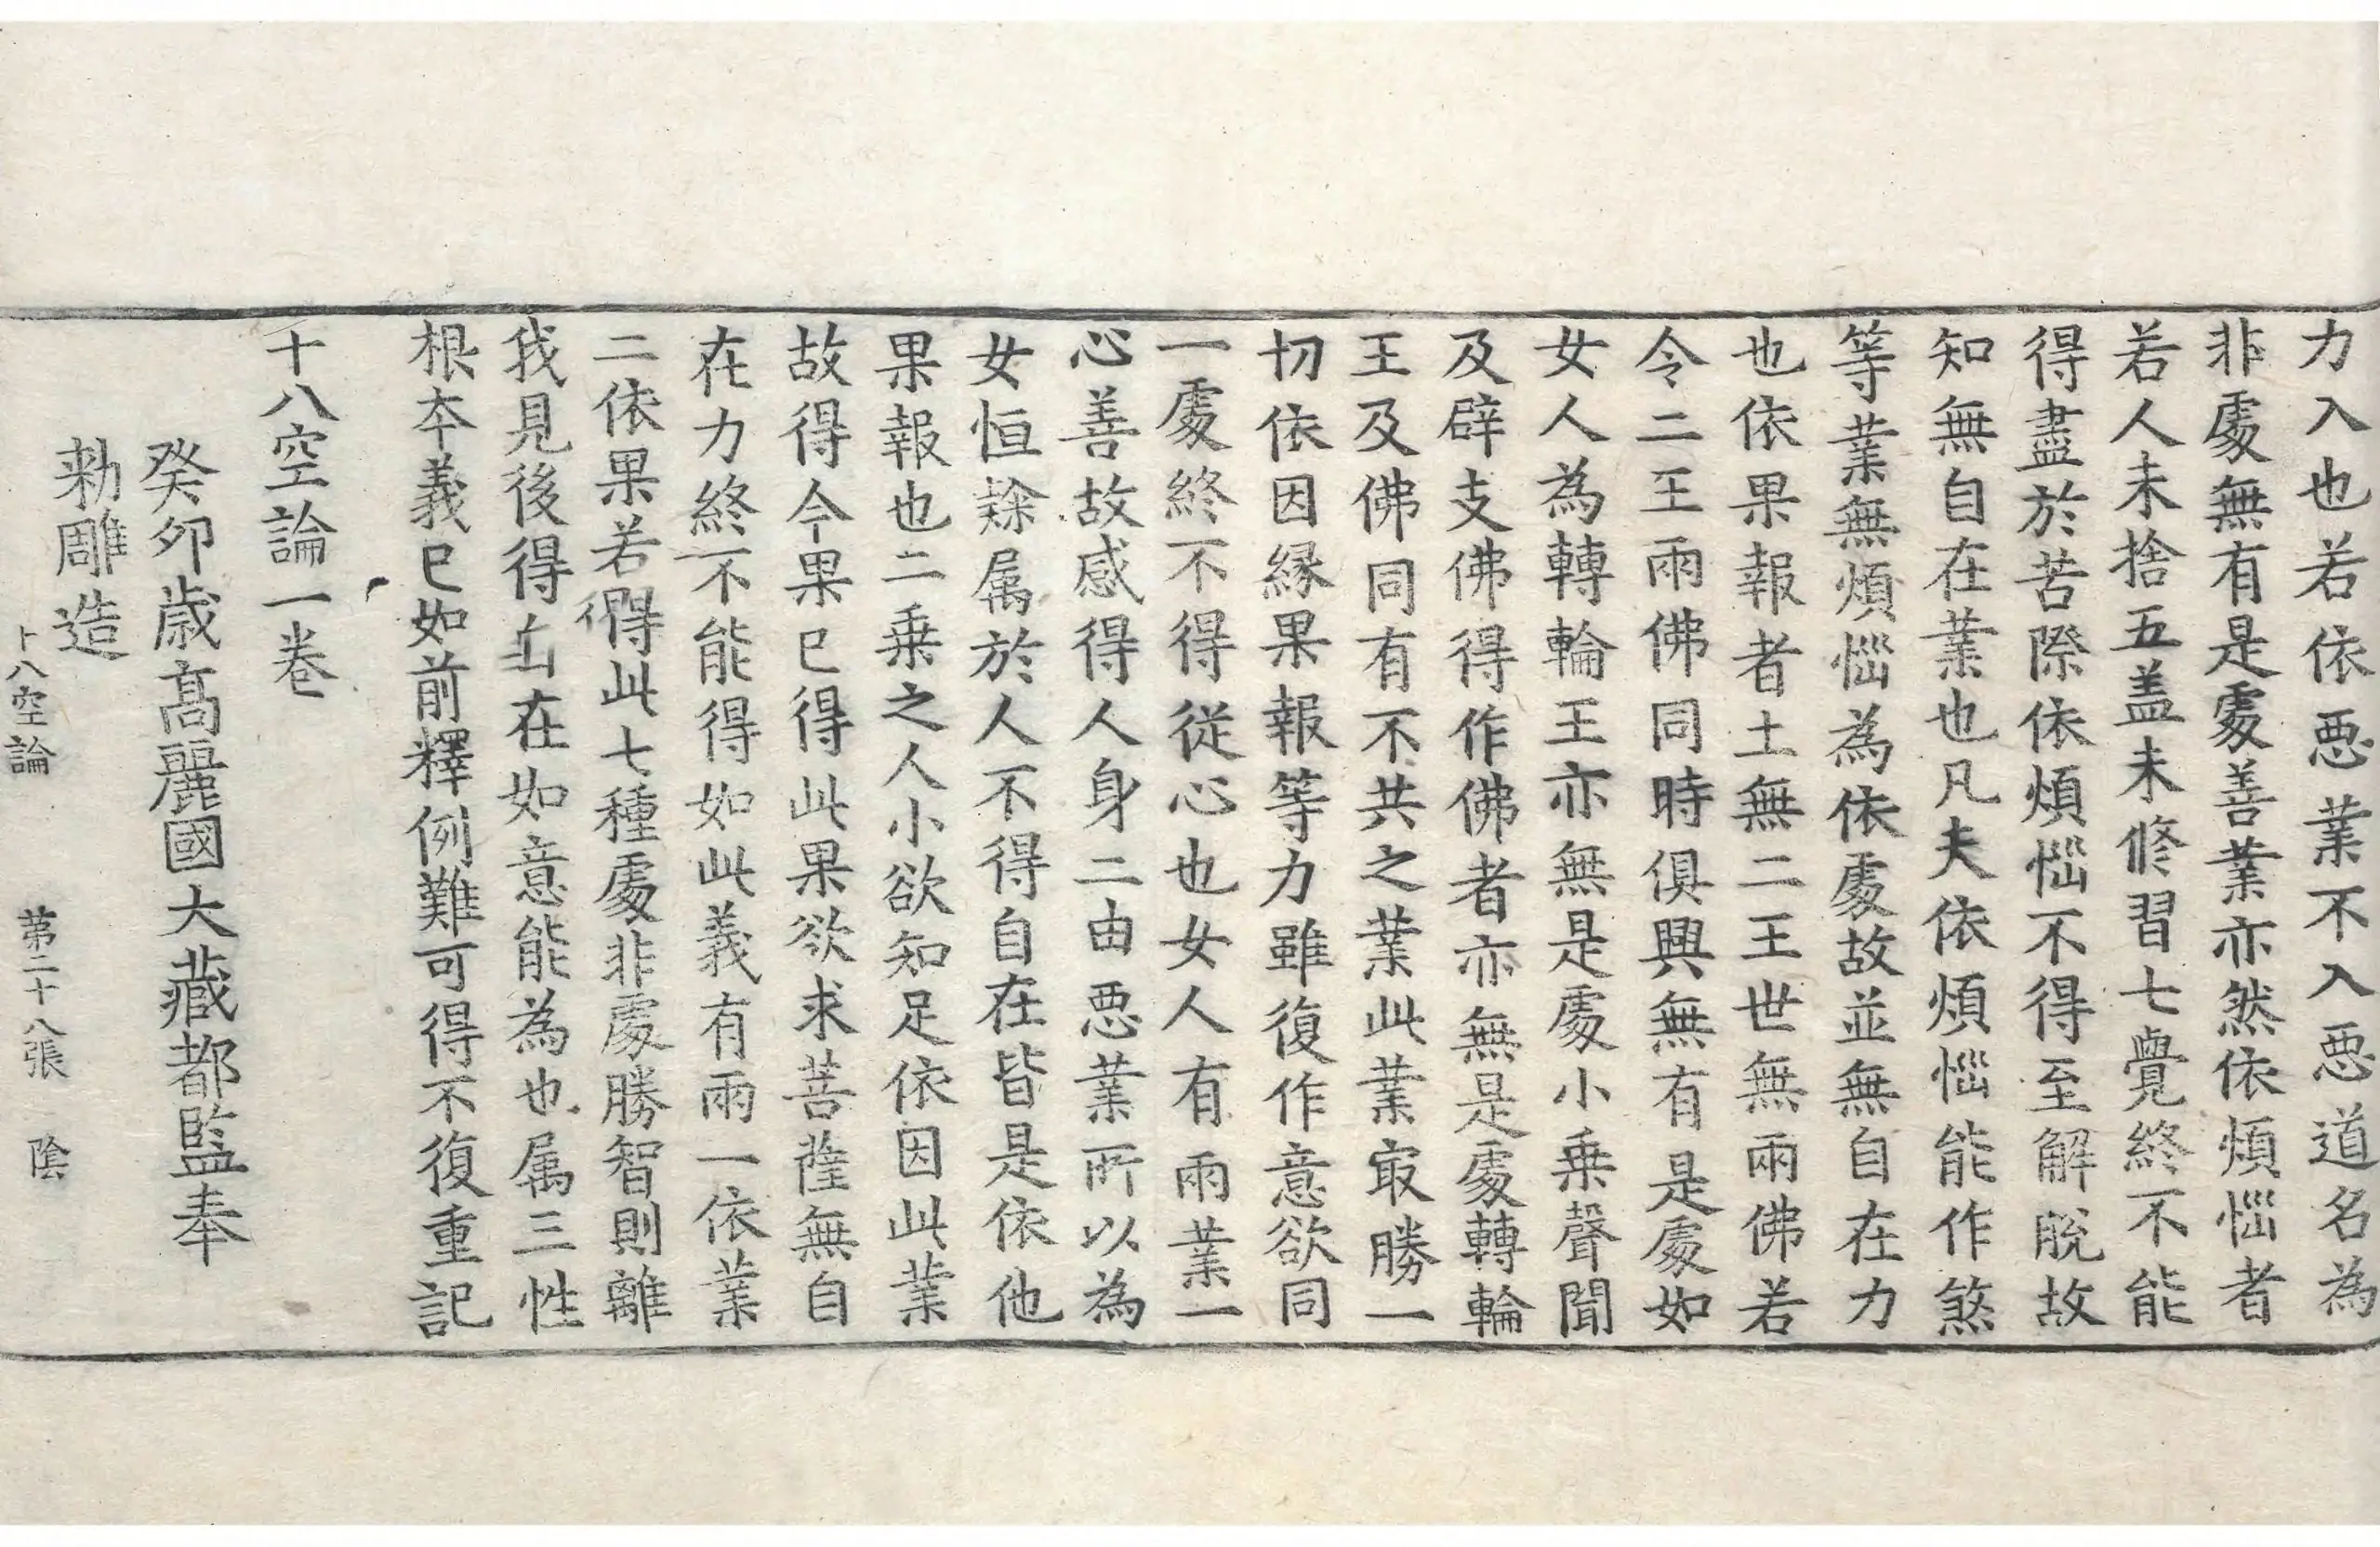 力入也若依惡業不入惡道名為
非處無有是處善業亦然依煩惱者
若人未捨五盖未修習七覺終不能
得盡於苦際依煩惱不得至解脫故
知無自在業也凡夫依煩惱能作煞
等業無煩惱為依處故並無自在力
也依果報者土無二王世無兩佛若
令二王兩佛同時俱興無有是處如
女人為轉輪王亦無是處小乗聲聞
及辟支佛得作佛者亦無是處轉輪
王及佛同有不共之業此業㝡勝一
切依因縁果報等力雖復作意欲同
一處終不得從心也女人有兩業一
心善故感得人身二由惡業所以為
女恒繫属於人不得自在皆是依他
果報也二乗之人小欲知足依因此業
故得今果已得此果欲求菩薩無自
在力終不能得如此義有兩一依業
二依果若得此七種處非處勝智則離
我見後得自在如意能為也属三性
根夲義已如前釋例難可得不復重記
十八空論一卷
癸卯歳髙麗國大藏都監奉
勑雕造
十八空論 第二十八張 陰